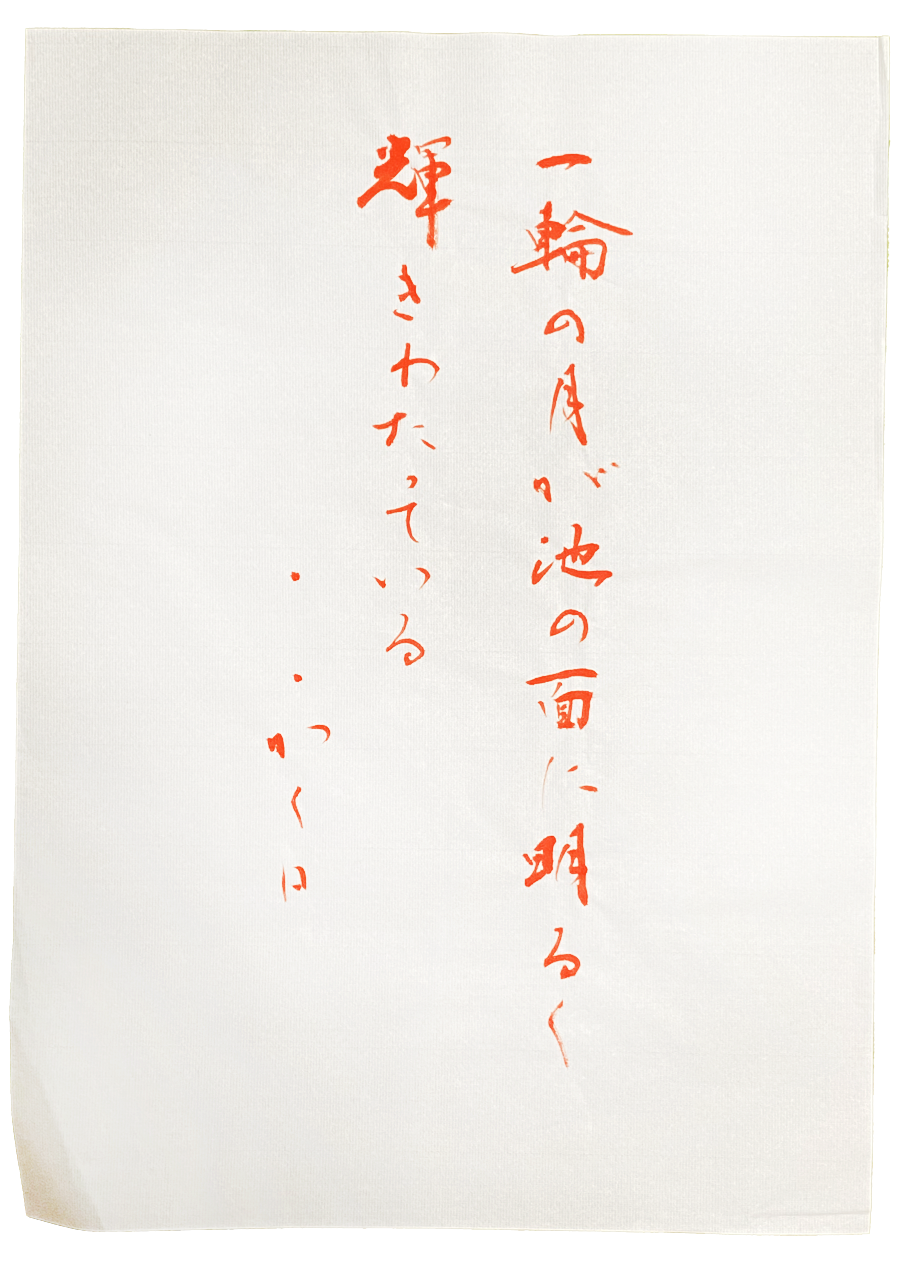 一輪の月が池の面に明るく
輝きわたっている
・・かく日